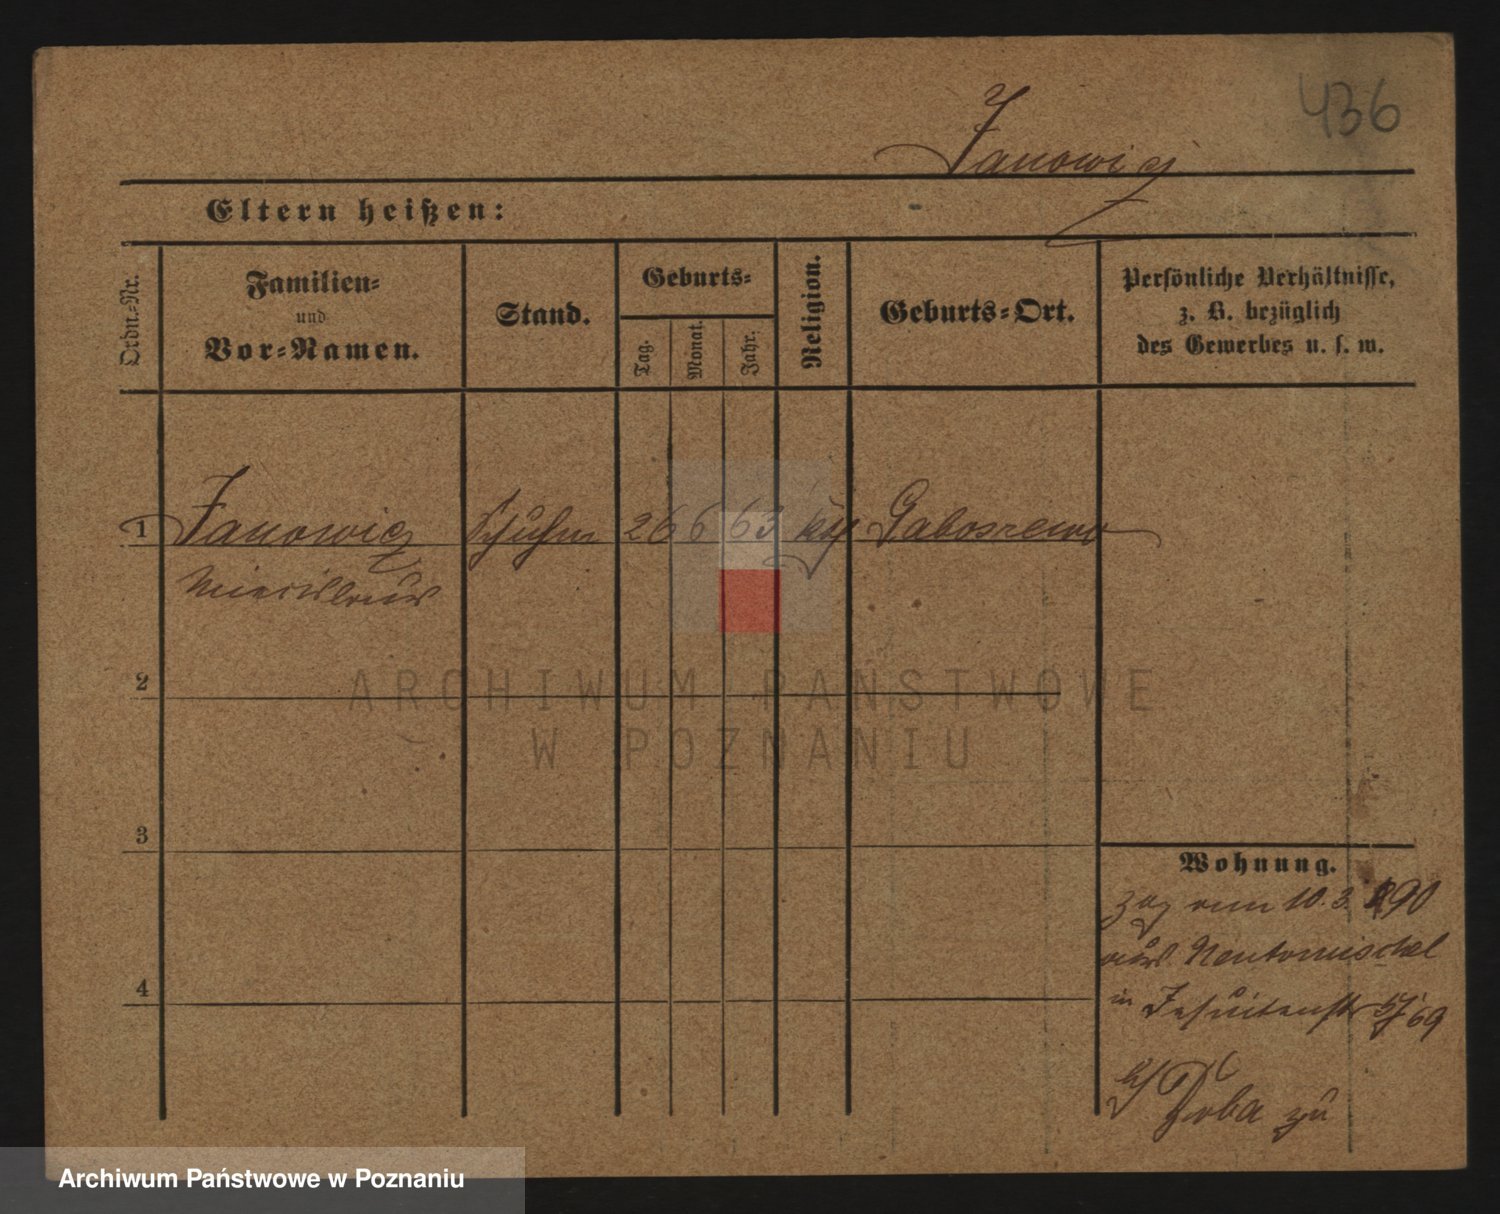 436
Janowicz
Eltern heißen:
Ordn.-Nr.
Familien-
und
Vor-Namen.
Stand.
Geburts-
Tag.
Monat.
Jahr.
Religion.
Geburts-Ort.
Persönliche Verhältnisse,
z. B. bezüglich
des Gewerbes u. s. w.
1 Janowicz Schuhm 26 6 63 kth
Miecislaus
2
3
4
Wohnung.
zog vom 10.3.90
aus Neutomischel
in Jesuitenstr 5/69
b/ zu
ARCHIWUM PAŃSTWOWE
W POZNANIU
Archiwum Państwowe w Poznaniu